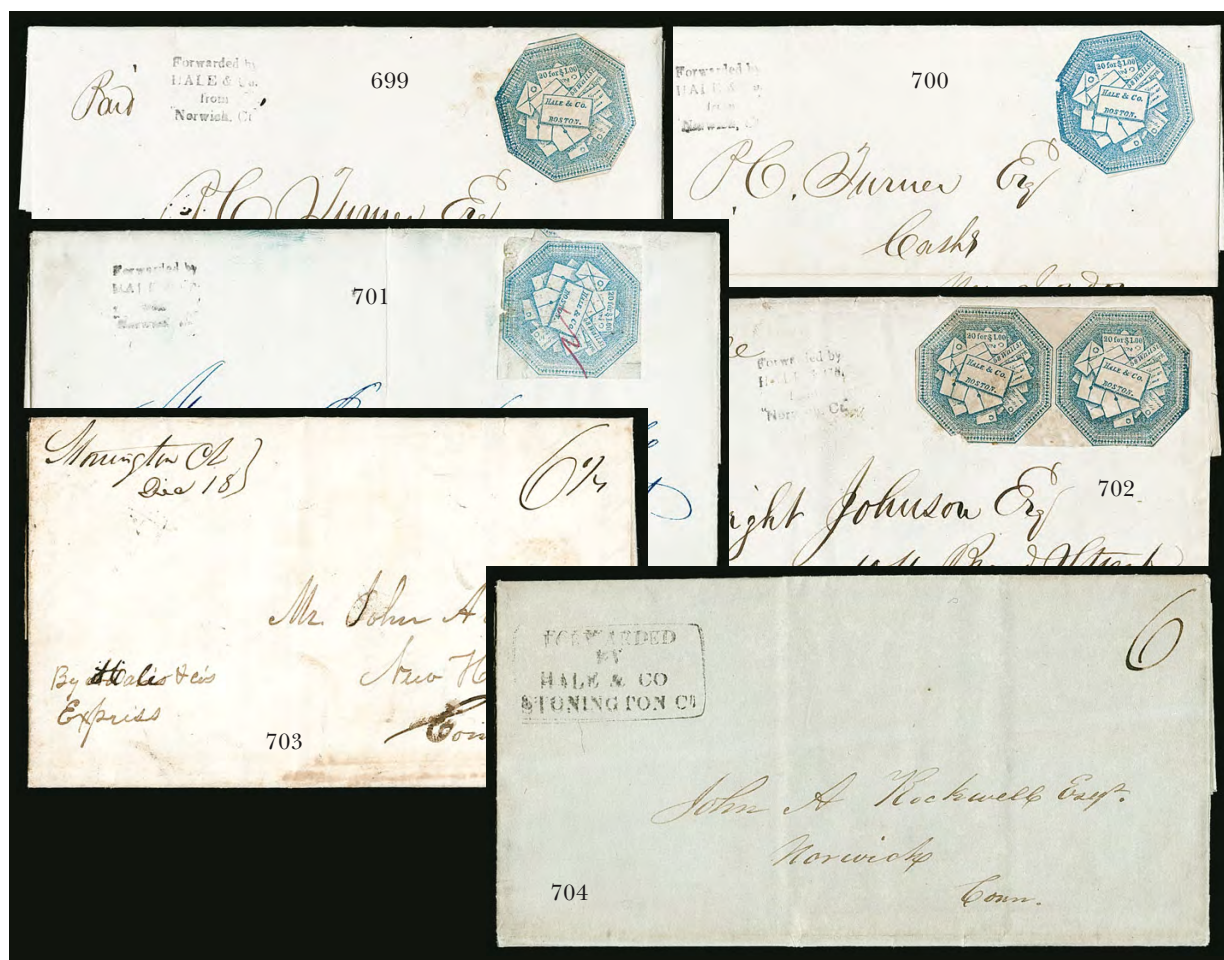 Paid
Forwarded by
HALE & Co.
from
Norwich, Ct
699
20 for $1.00
HALE & Co.
BOSTON.
P.C. Turner Esq
Forwarded by
HALE & Co.
from
Norwich, Ct
700
20 for $1.00
HALE & Co.
BOSTON.
P.C. Turner Esq
Cash^r
Forwarded by
HALE & Co.
from
Norwich, Ct
701
20 for $1.00
HALE & Co.
BOSTON.
Forwarded by
HALE & Co.
from
Norwich, Ct
20 for $1.00
HALE & Co.
BOSTON.
20 for $1.00
HALE & Co.
BOSTON.
702
ight Johnson Esq
Stonington Ct
Dec 18
6
Mr. John A
New H
By Hale & co's
Express
Con
703
FORWARDED
BY
HALE & CO
STONINGTON Ct
6
John A Rockwell Esqr.
Norwich
Conn.
704